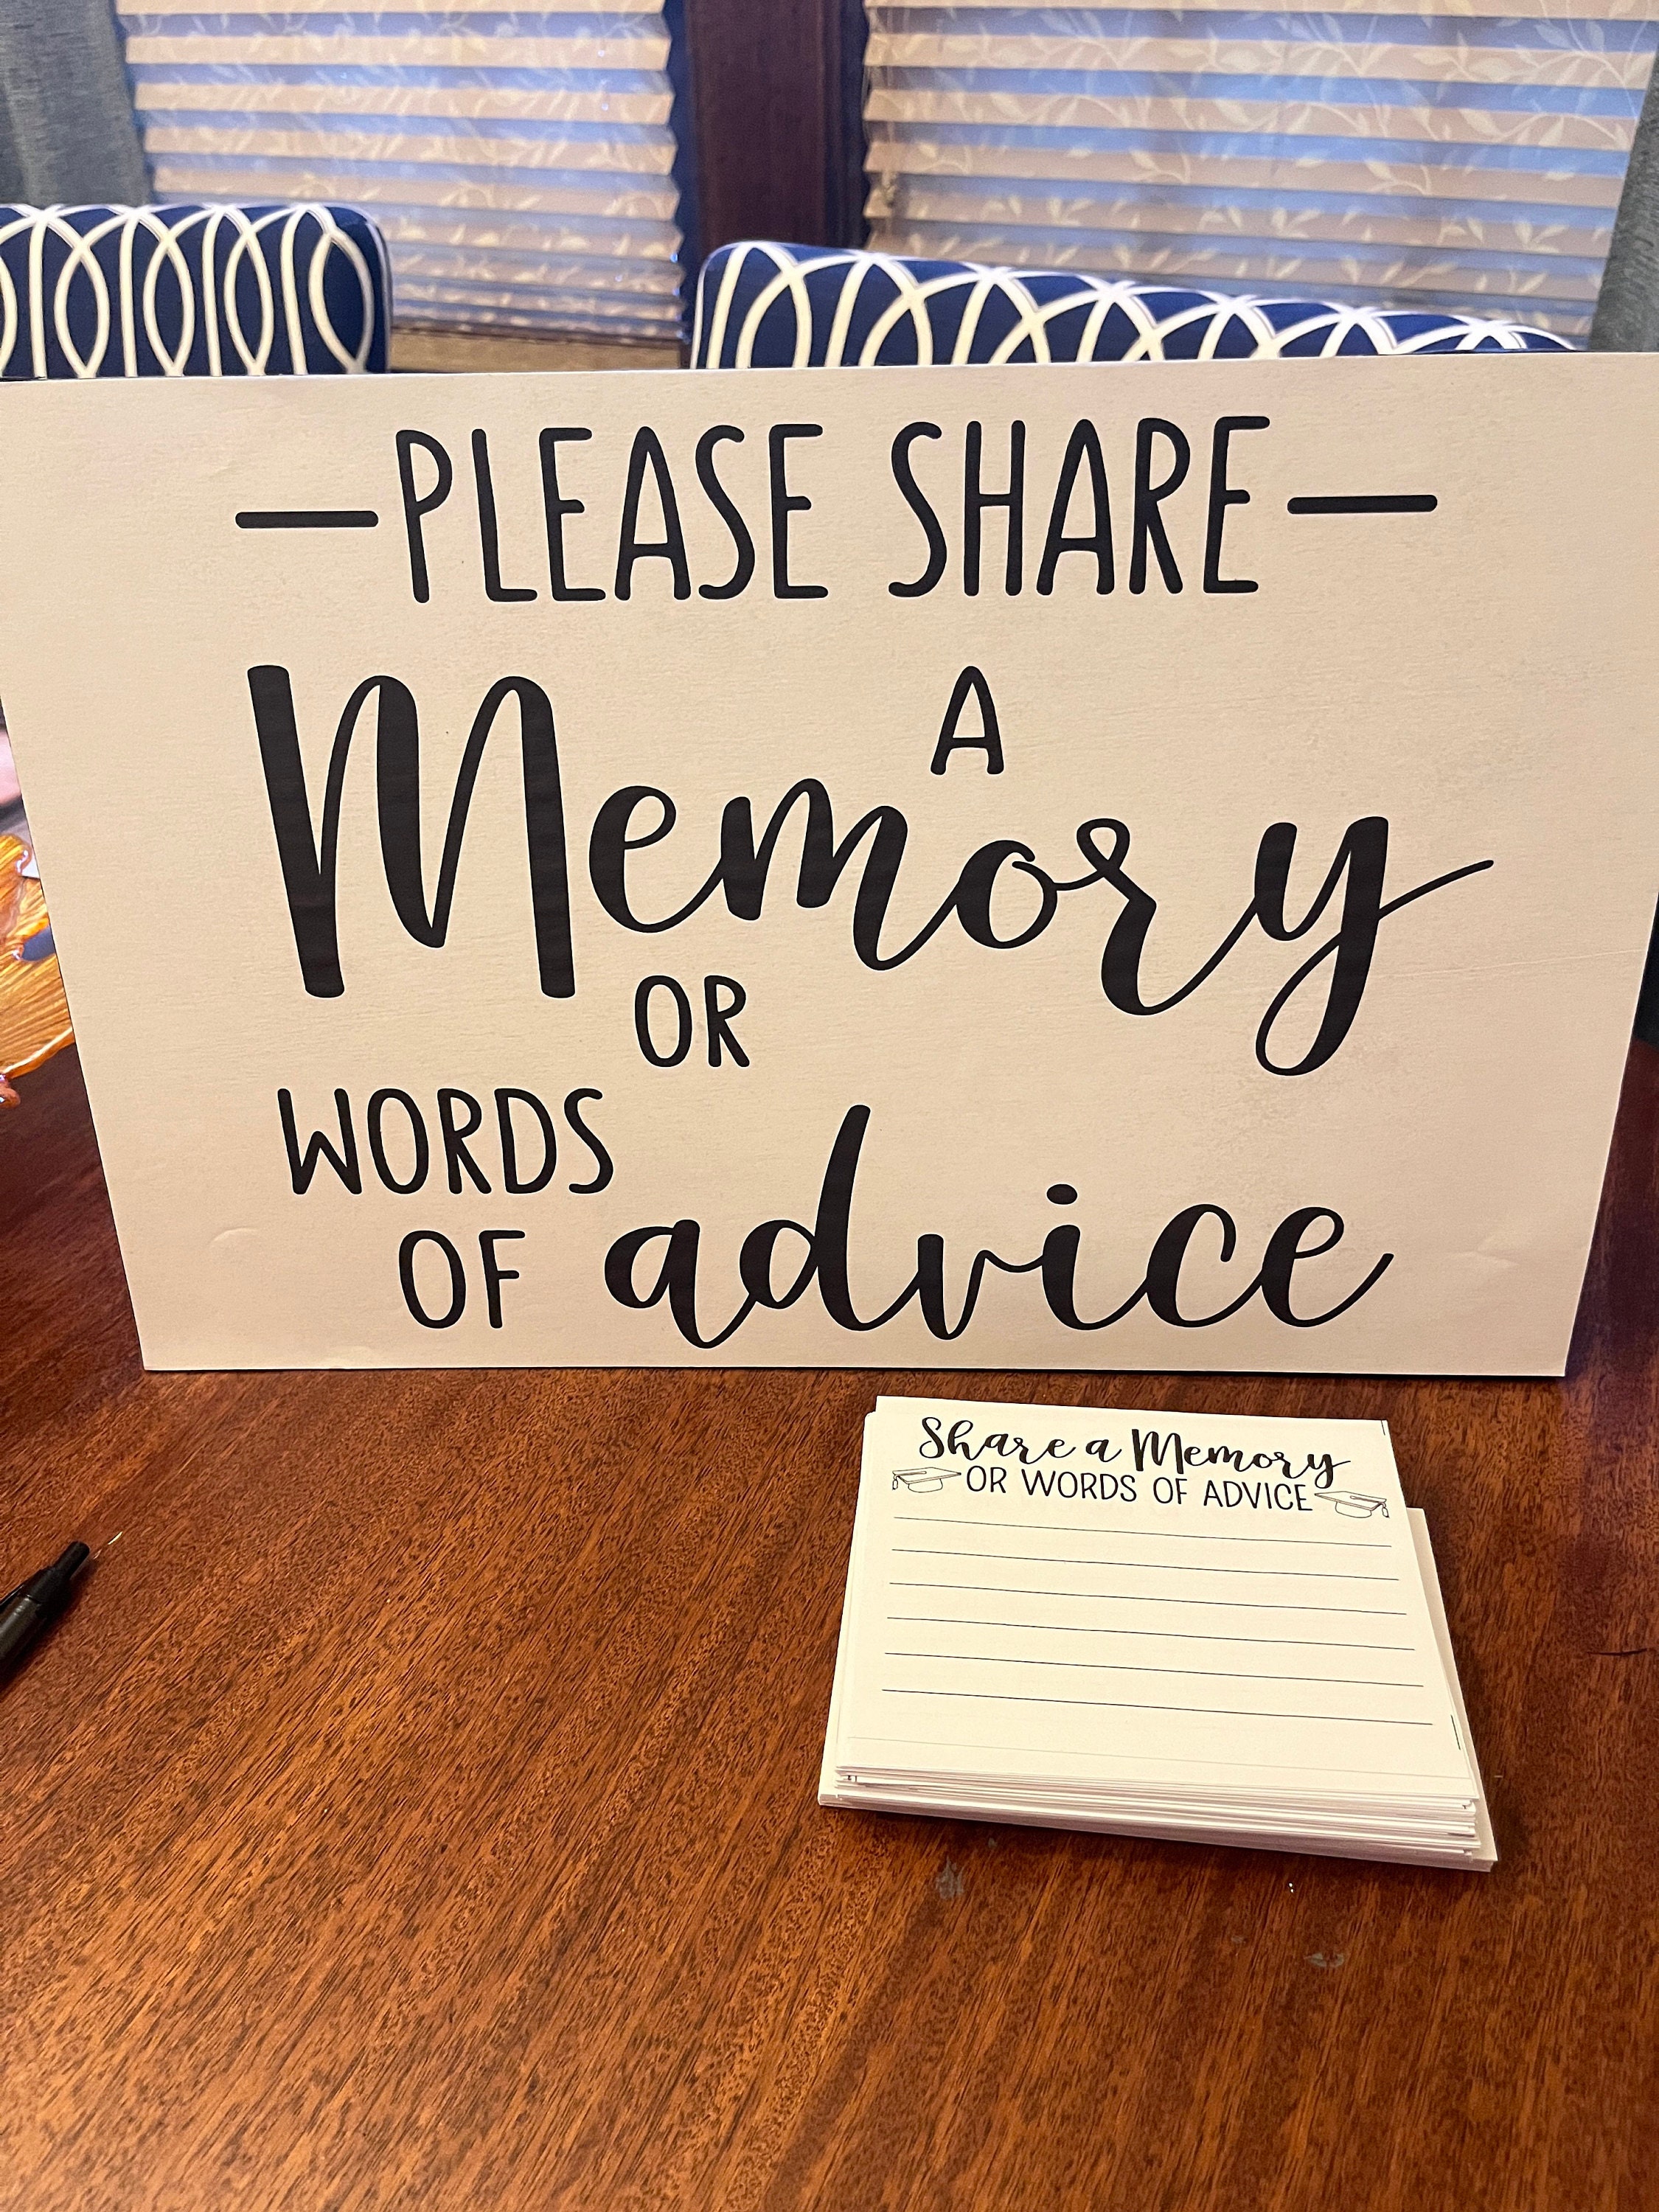 PLEASE SHARE
A
Memory
OR
WORDS
OF advice
Share a Memory
OR WORDS OF ADVICE